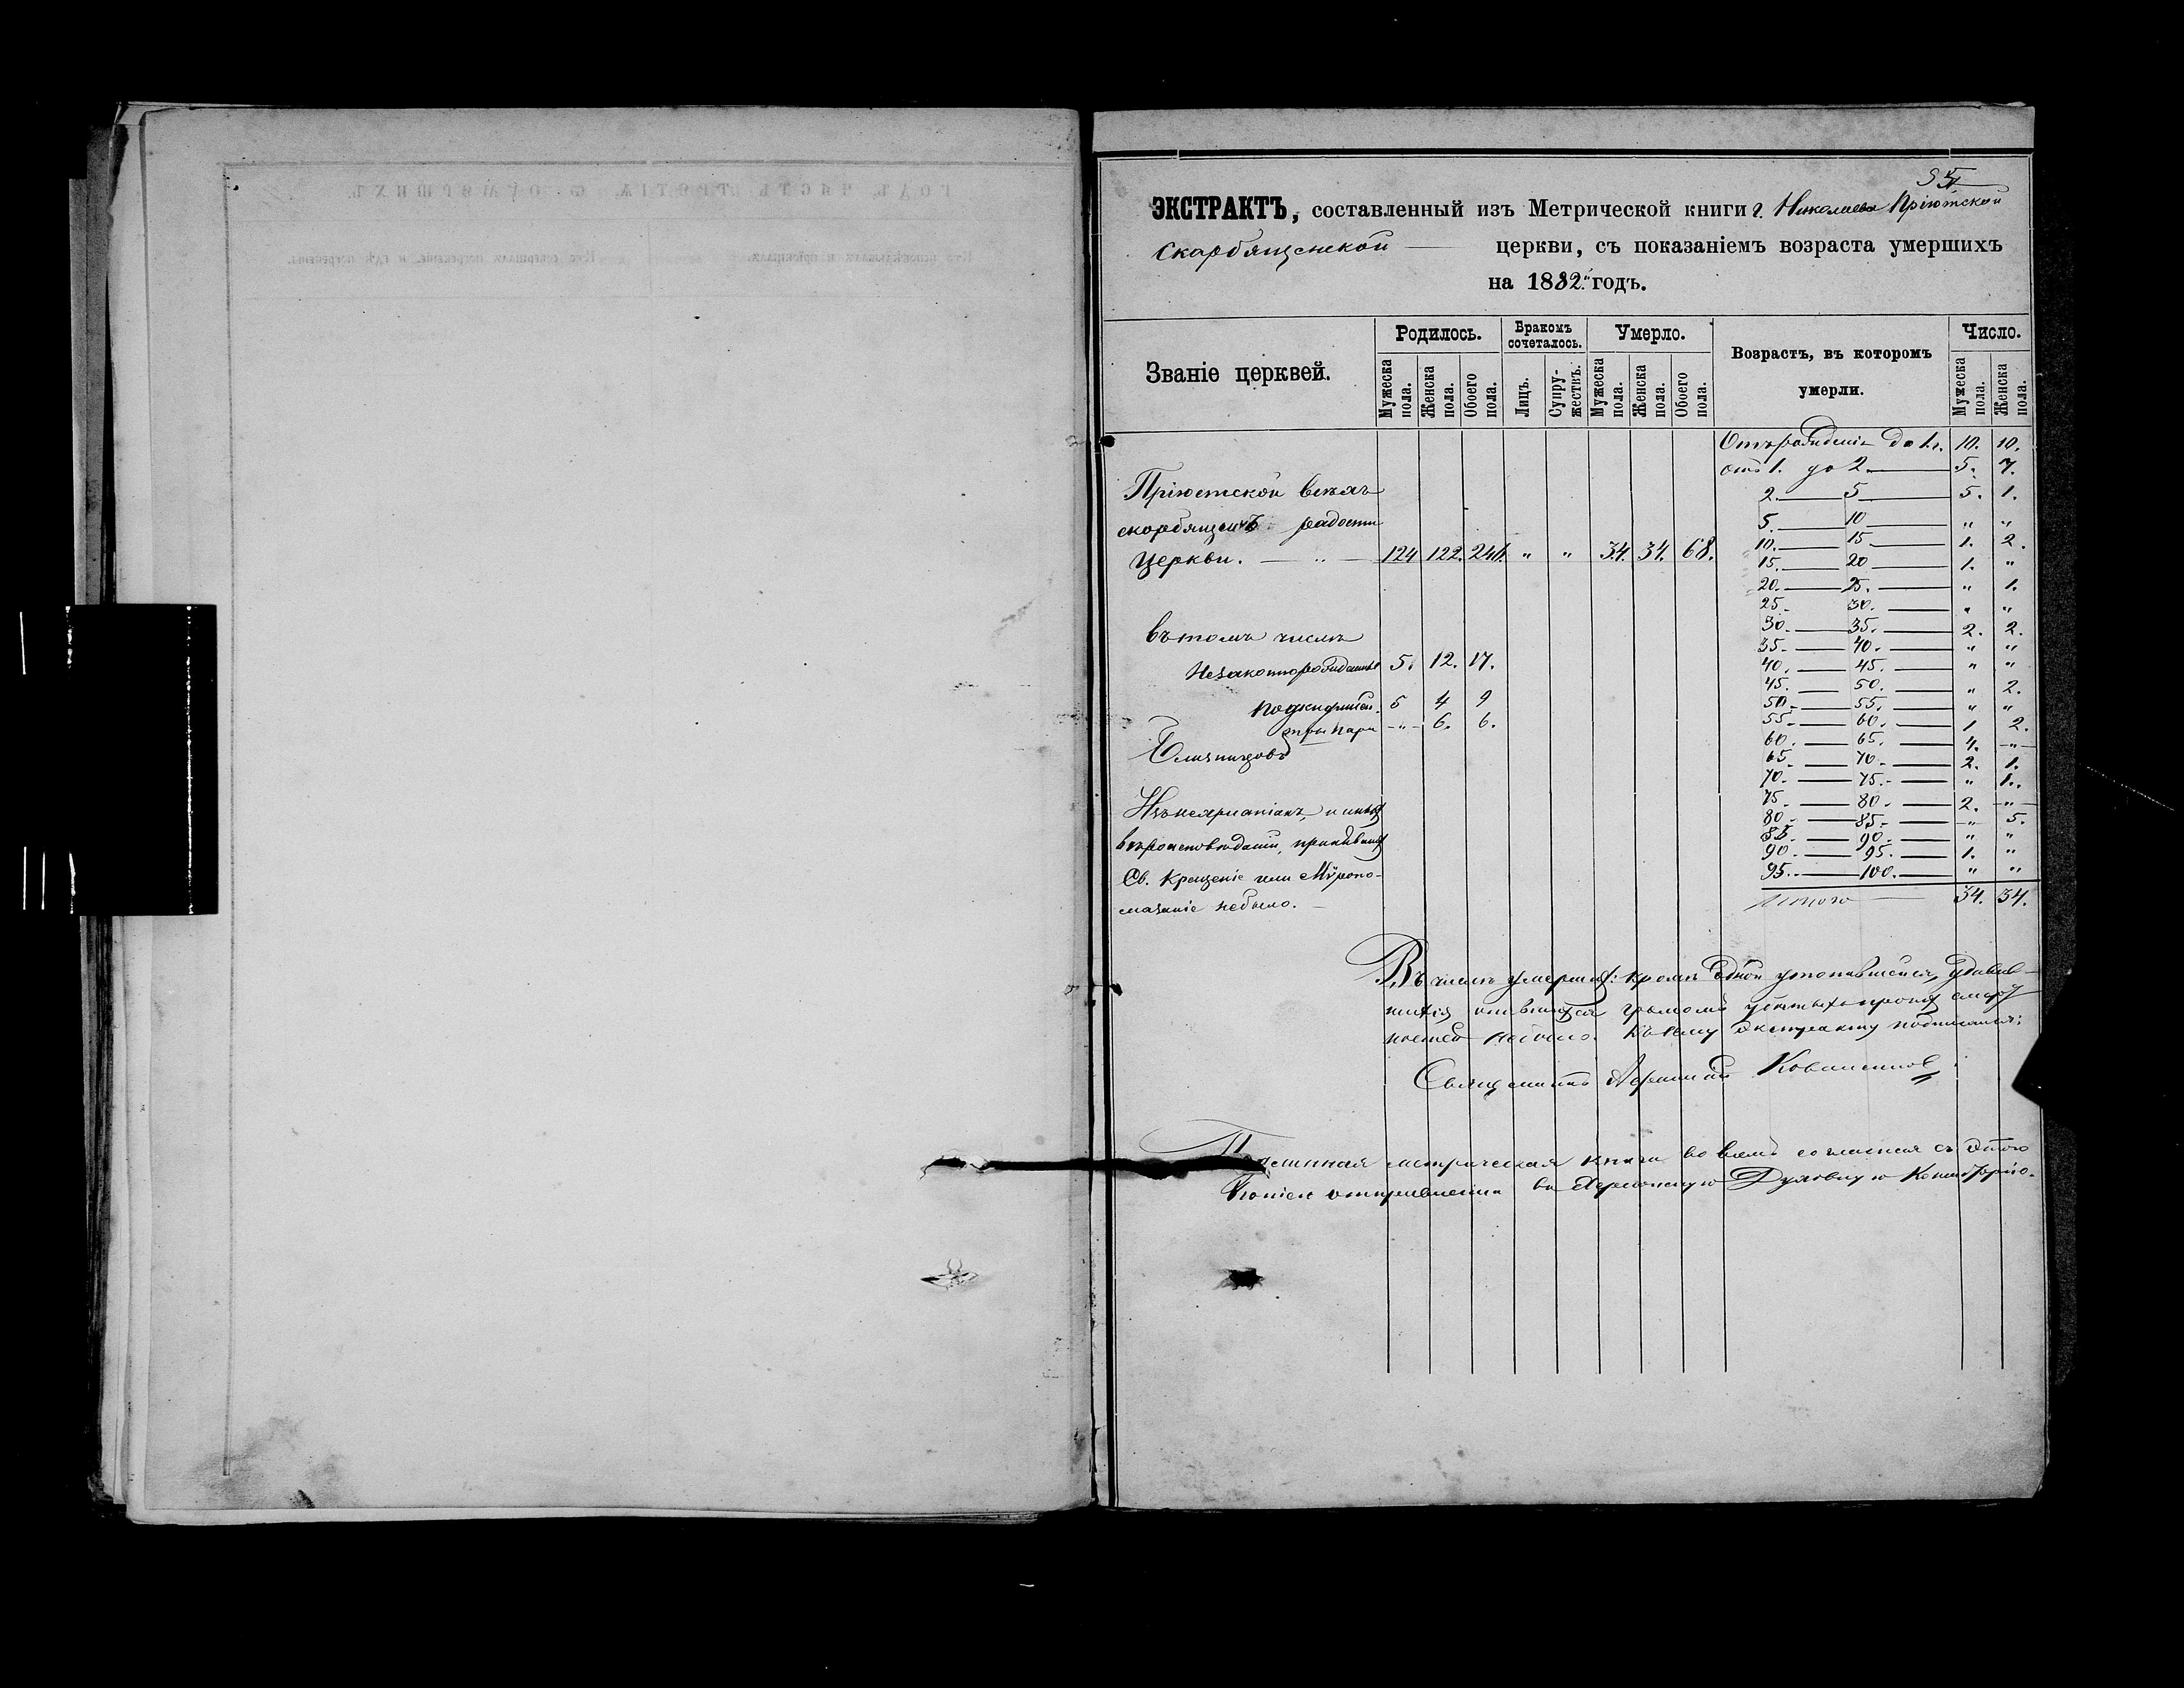 ЭКСТРАКТЪ, составленный изъ Метрической книги г. Николаева Пріютской
Скарбященской церкви, съ показаніемъ возраста умершихъ
на 1882 годъ.
Званіе церквей.
Родилось.
Бракомъ сочеталось.
Умерло.
Возрастъ, въ которомъ умерли.
Число.
Мужеска пола. Женска пола. Обоего пола. Лицъ. Супру-жествъ. Мужеска пола. Женска пола. Обоего пола. Мужеска пола. Женска пола.
Отъ рожденія до 1 г. 10. 10.
отъ 1. до 2. 5. 7.
2. 5 5. 1.
5. 10 " "
10. 15 1. 2.
15. 20 1. "
20. 25. " 1.
25. 30. " "
30. 35. 2. 2.
35. 40. " "
40. 45. " "
45. 50. " 2.
50. 55. " "
55. 60. 1 2.
60. 65. 4. "
65. 70. 2. 1.
70. 75. " 1.
75. 80. 2. "
80. 85. " 5.
85. 90. " "
90. 95. 1. "
95. 100. " "
Итого 34. 34.
Пріютской всѣхъ
скорбящихъ радости
Церкви. 124 122. 246. " " 34. 34. 68.
Въ томъ числѣ
Незаконнорожденныхъ 5. 12. 17.
подкидышей. 5 4 9
три пари " 6. 6.
Близнецовъ
Изъ нехристіанъ, и иныхъ
вѣроисповѣданій, принявшихъ
Св. Крещеніе или Мѵропо-
мазаніе небыло.
Въ числѣ умершихъ: кромѣ одной утопившейся, удавив-
шихся опившихся громомъ убитыхъ
небыло. Къ сему экстракту подписался:
Священникъ
Подлинная метрическая книга во всемъ согласна съ этою
Копіею отправленна въ Херсонскую Духовную Консисторію.